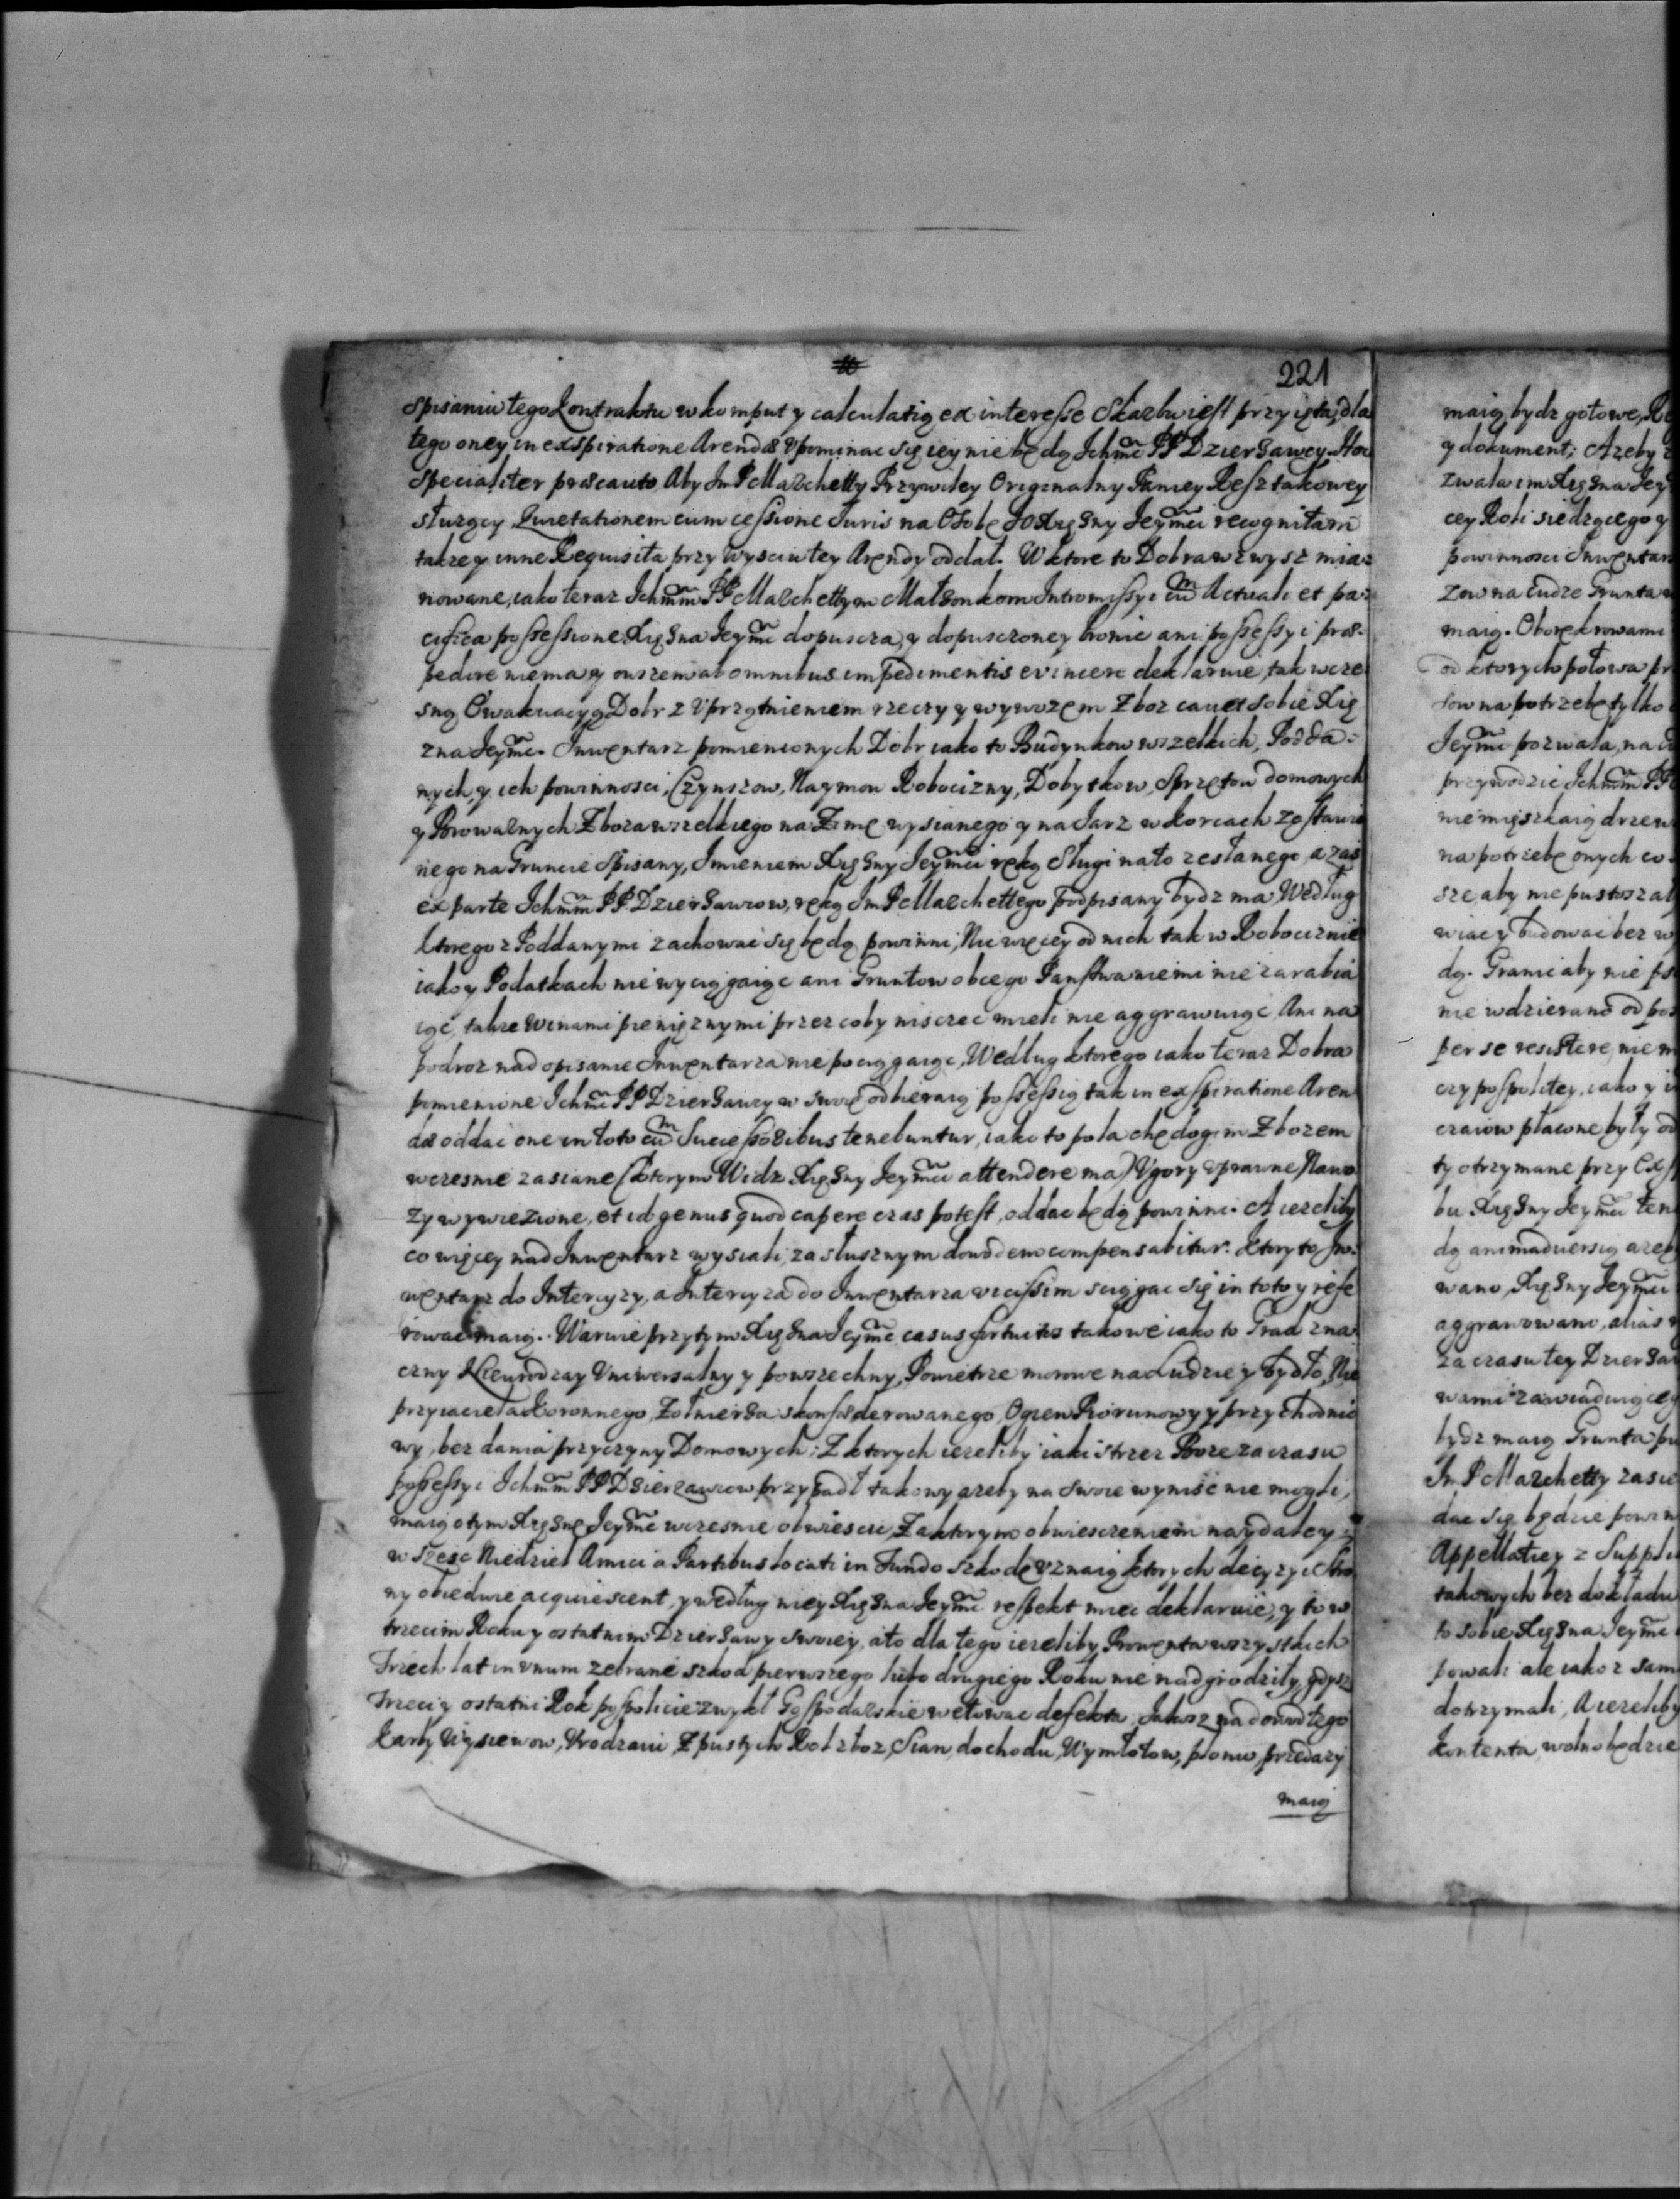 221
spisaniu tego Kontraktu w komput y calculatią ex interesse Skarbu iest przyięta, dla
tego oney in exspiratione Arendæ vpominac się iey nie będą Ichmć PP Dzierżawcy. Hoc
specialiter præcauto Aby Im P Marchetty Przywiley Originalny Paniey Resztakowey
służący Quietationem cum cessione Iuris na Osobę JO Xiężny Ieymći recognitam
także y inne Requisita przy wysciu tey Arendy oddał. W ktore to Dobra wzwysz mia=
nowane, iako teraz Ichmm PP Marchettym Małżonkom Intromissyi cum Actuali et pa=
cifica possessione Xiężna Ieymć dopuscza, y dopusczoney bronic ani possessyi præ=
pedire niema y owszem ab omnibus impedimentis evincere deklaruie, tak wcze
sną Ewakuacyą Dobr z vprzątnieniem rzeczy y wywozem Zboz cauet sobie Xię
zna Ieymć. Inwentarz pomienionych Dobr iako to Budynkow wszelkich, Podda=
nych, y ich powinnosci, Czynszow, Naymow Robocizny, Dobytkow, Sprzętow domowych
y Browalnych Zboza wszelkiego na Zimę wysianego y na Iarz w Korcach zostawio
nego na Gruncie spisany, Imieniem Xiężny Ieymći ręką Sługi na to zesłanego, a zaś
ex parte Ichmm PP. Dzierżawcow, ręką Im P Marchettego podpisany bydz ma Według
ktorego z Poddanymi zachować się będą powinni, Nic więcey od nich tak w Robociznie
iako y Podatkach nie wyciągaiąc ani Gruntow obcego Panstwa niemi nie zarabia
iąc, takze Winami pieniężnymi przez coby nisczec mieli nie aggrawuiąc Ani na
podroz nad opisanie Inwentarza nie pociągaiąc, Według ktorego iako teraz Dobra
pomienione Ichmć PP Dzierżawcy w swoię odbieraią possessią tak in exspiratione Aren
dæ oddać one in toto cum Successoribus tenebuntur, iako to pola chędogim Zbozem
wczesnie zasiane (ktorym Widz Xiężny Ieymći attendere ma) Vgory vprawne Nawo
zy wywiezione, et id genus quod capere czas potest, oddac będą powinni. A iezeliby
co więcey nad Inwentarz wysiali, za słusznym dowodem compensabitur. Ktory to In=
wentarz do Intercyzy, a Intercyza do Inwentarza vicissim sciągac się in toto y refe
rowac maią. Waruie przytym Xiężna Ieymć casus fortuitos takowe iako to Grad zna
czny Nieurodzay Vniwersalny y powszechny, Powietrze morowe na Ludzie y Bydło, Nie
przyiaciela Koronnego, Zołnierza skonfæderowanego, Ogien Piorunowy y przychodnio
wy, bez dania przyczyny Domowych: Z ktorych iezeliby iaki strzez Boze za czasu
possessyi Ichmm PP Dzierzawcow przypadł takowy azeby na swoie wyniść nie mogli,
maią o tym Xiężnę Ieymć wczesnie obwiescic, Za ktorym obwiesczeniem naydaley
w Szesc Niedziel Amici a Partibus locati in Fundo szkodę vznaią ktorych decyzyi Stro
ny obiedwie acquiescent, y według niey Xiężna Ieymć respekt miec deklaruie, y to w
trzecim Roku y ostatnim Dzierżawy swoiey, a to dla tego iezeliby Prowenta wszystkich
Trzech lat in vnum zebrane szkod pierwszego lubo drugiego Roku nie nadgrodziły, gdysz
Trzeci y ostatni Rok pospolicie zwykł Gospodarskie wetowac defekta, Iakosz na dowod tego
Karby Wysiewow, Vrodzaiu, Z pustych Rol zboz, Sian, dochodu, Wymłotow, plonu, przedazy
maią
maią bydz gotowe, Re
y dokument; Azeby z
zwala im Xiężna Iey
cey Roli siedzącego y
powinnosci Inwentar
zow na cudze Grunta
maią. Oborek rowami
od ktorych połowa pr
sow na potrzebę tylko
Ieymć pozwala, na
przywodzic Ichmm PP
nie mięszkaią drzew
na potrzebę onych co
sze, aby nie pustoszal
wiac y budowac bez w
dą. Granic aby nie ps
nie wdzierano od pos
per se resistere, nie m
czypospolitey, iako y i
czaiow płatne były od
ty otrzymane przy Ex
bu Xiężny Ieymći ten
dą animadversią azeb
wano, Xiężny Ieymći
aggrawowano, alias
za czasu tey Dzierżaw
wami zawiaduiącey
bydz maią Grunta pu
Im P Marchetty zasie
dac się będzie powin
Appellatiey z Suppli
takowych bez dokładu
to sobie Xiężna Ieymć
powali ale iako z sam
dotrzymali, A iezeliby
Kontenta wolno będzie